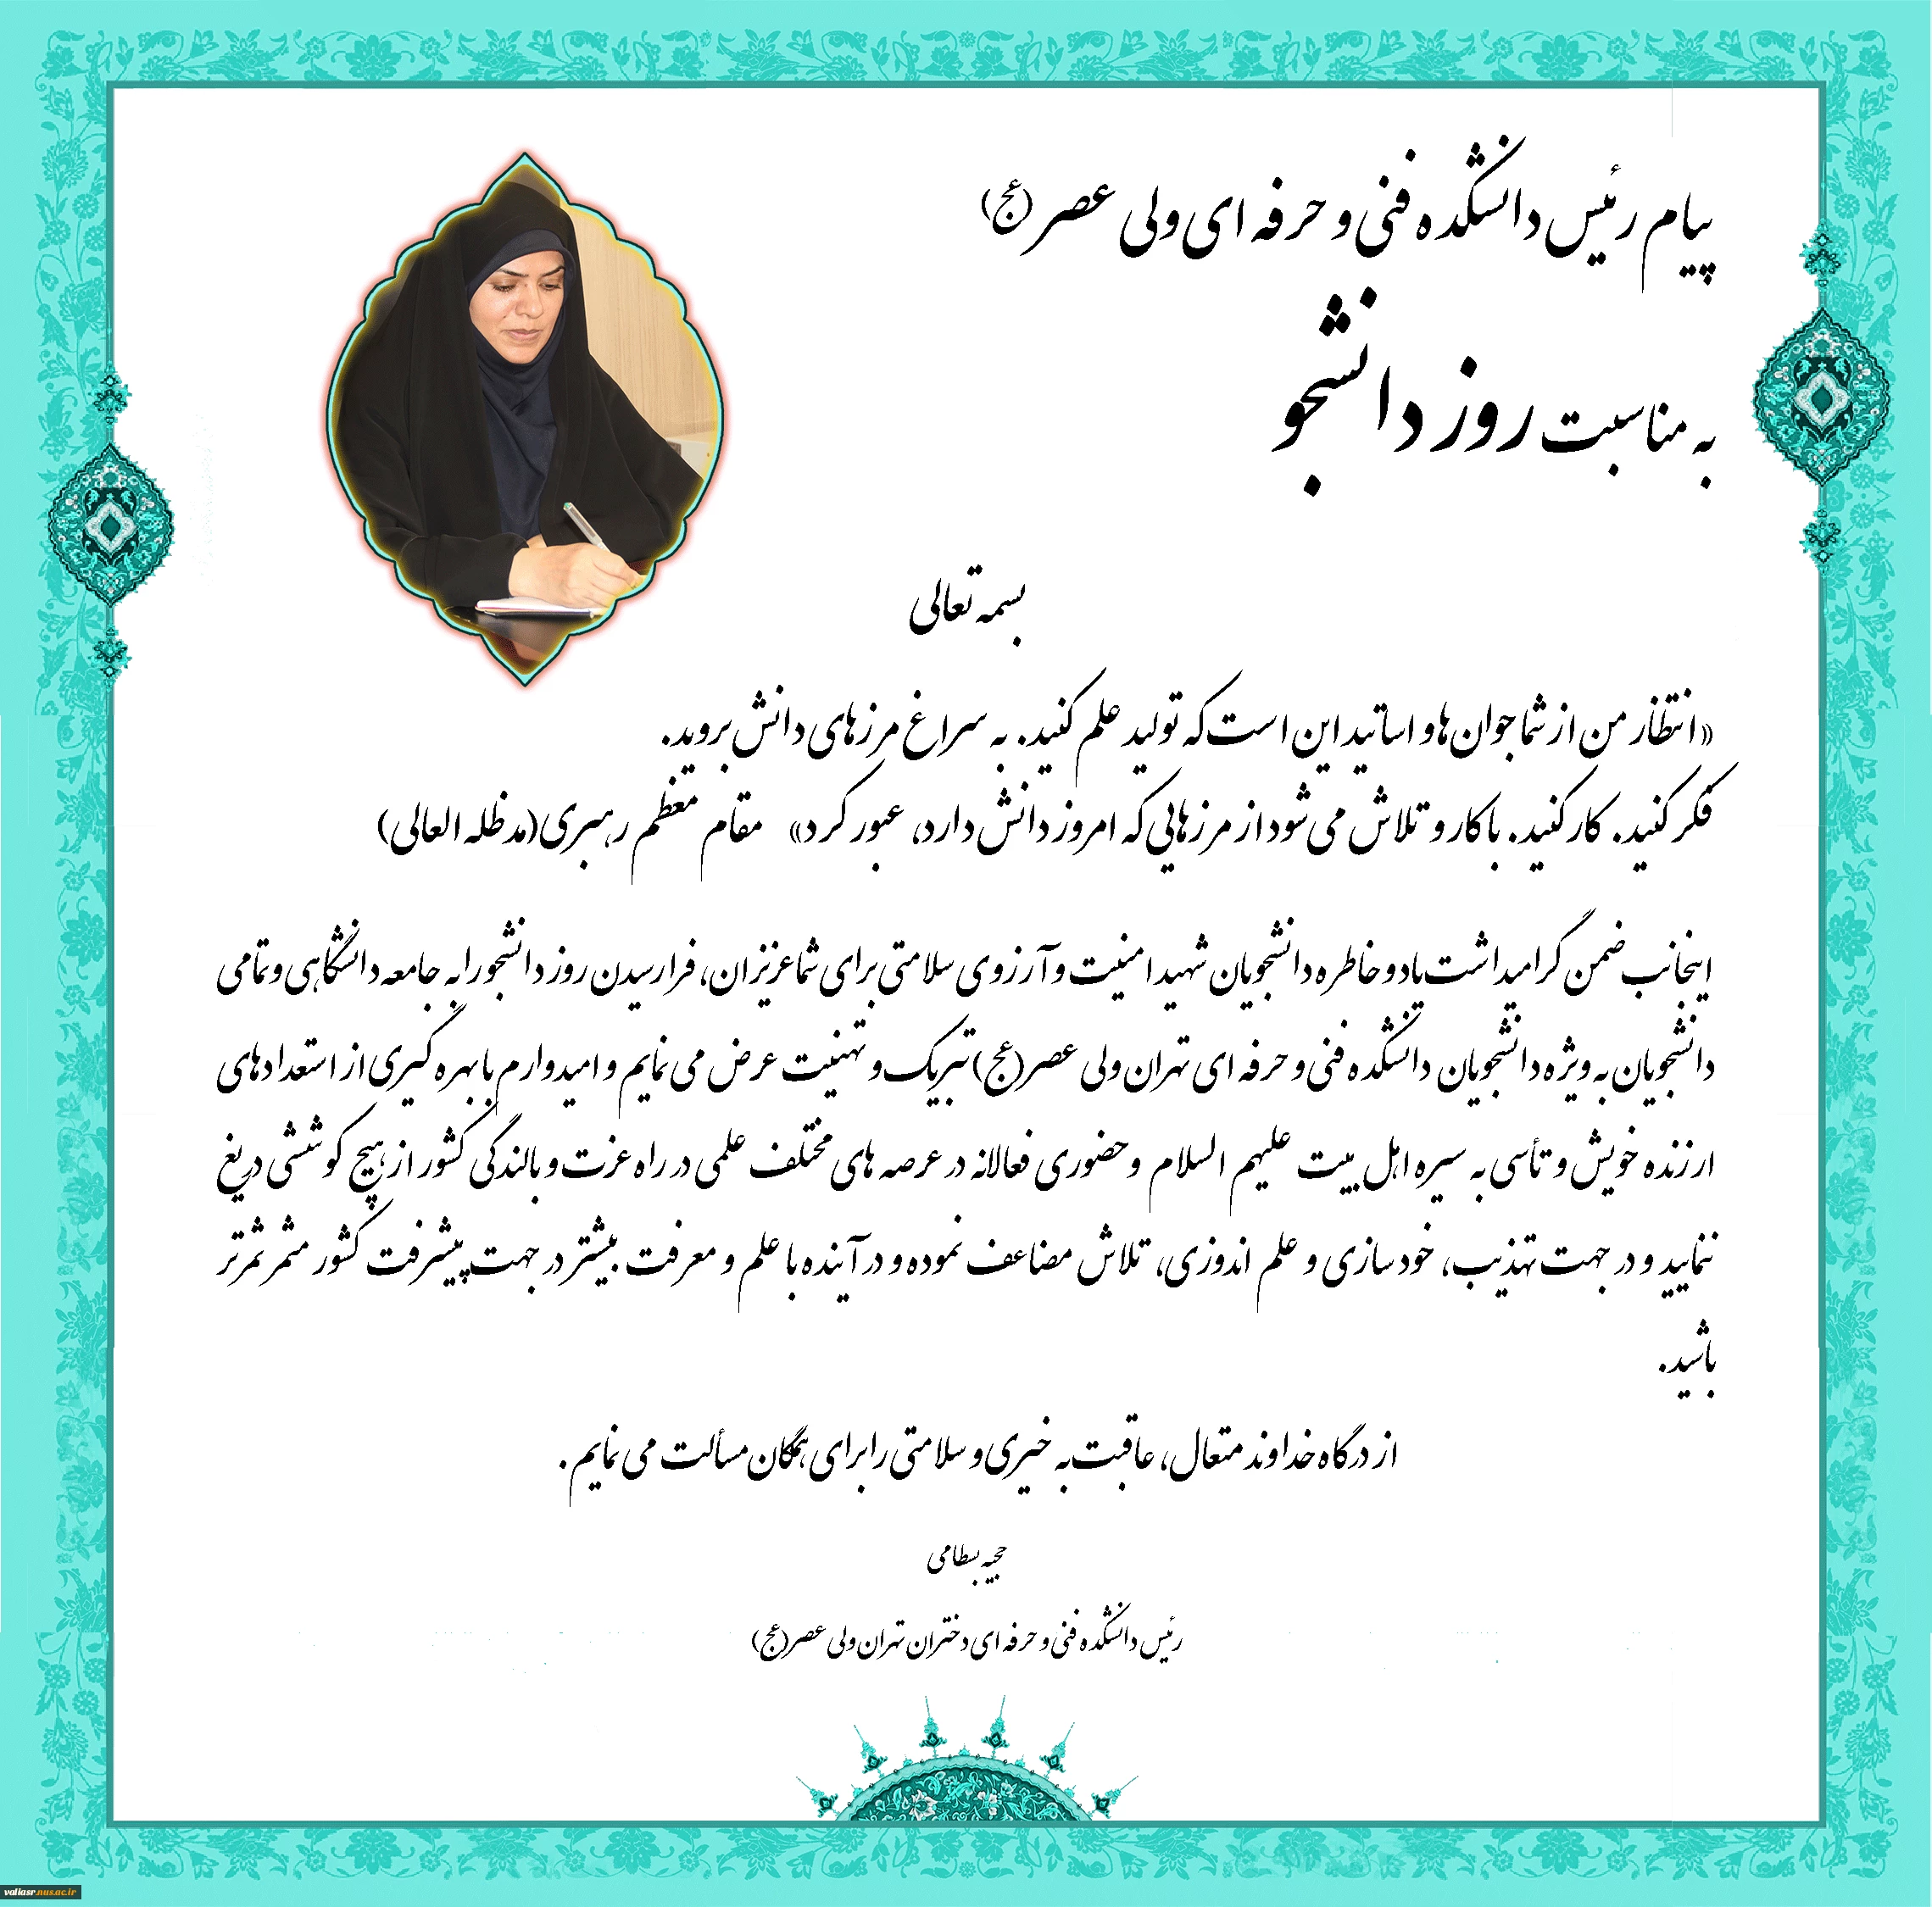 پیام رئیس دانشکده فنی و حرفه ای ولی عصر (عج)
به مناسبت روز دانشجو
بسمه تعالی
«انتظار من از شما جوان ها و اساتید این است که تولید علم کنید. به سراغ مرزهای دانش بروید.
فکر کنید. کار کنید. با کار و تلاش می شود از مرزهایی که امروز دانش دارد، عبور کرد» مقام معظم رهبری (مدظله العالی)
اینجانب ضمن گرامیداشت یاد و خاطره دانشجویان شهید امنیت و آرزوی سلامتی برای شما عزیزان، فرارسیدن روز دانشجو را به جامعه دانشگاهی و تمامی
دانشجویان به ویژه دانشجویان دانشکده فنی و حرفه ای تهران ولی عصر (عج) تبریک و تهنیت عرض می نمایم و امیدوارم با بهره گیری از استعدادهای
ارزنده خویش و تأسی به سیره اهل بیت علیهم السلام و حضوری فعالانه در عرصه های مختلف علمی در راه عزت و بالندگی کشور از هیچ کوششی دریغ
ننمایید و در جهت تهذیب، خودسازی و علم اندوزی، تلاش مضاعف نموده و در آینده با علم و معرفت بیشتر در جهت پیشرفت کشور مثمر ثمرتر
باشید.
از درگاه خداوند متعال، عاقبت به خیری و سلامتی را برای همگان مسألت می نمایم.
بسطامی
رئیس دانشکده فنی و حرفه ای دختران تهران ولی عصر (عج)
valiasr.nus.ac.ir